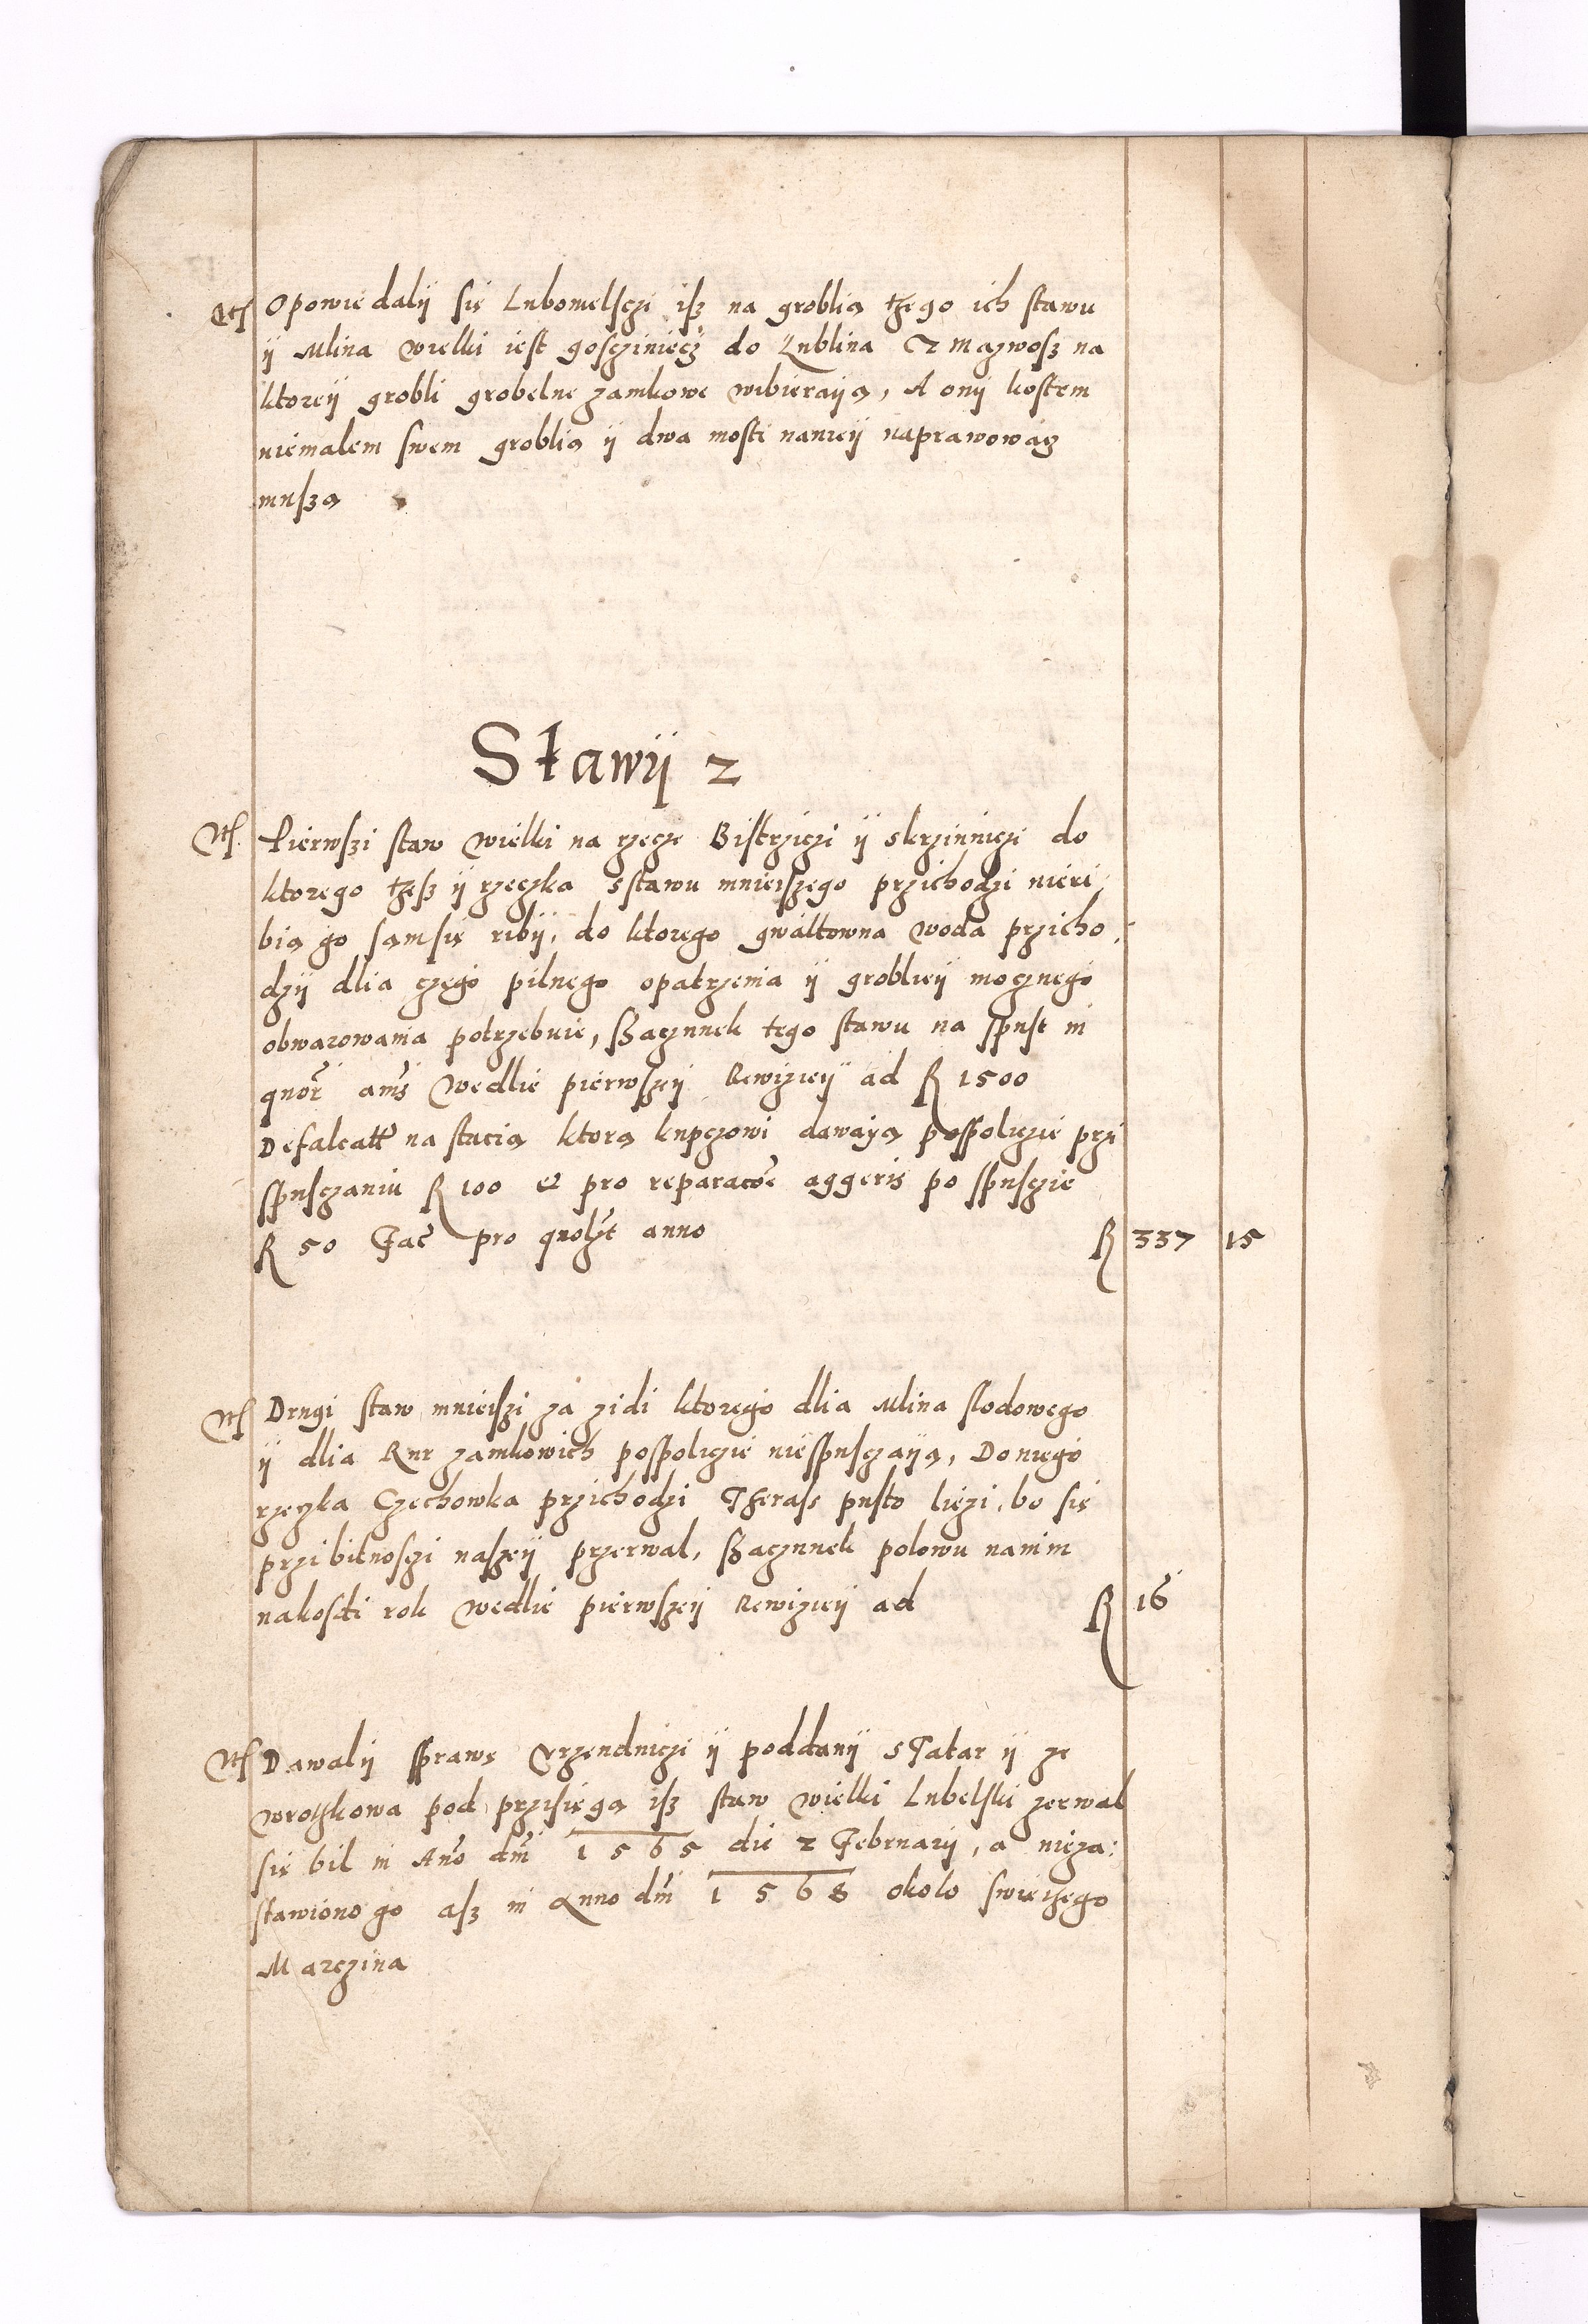 Nts Opowiedalÿ się Lubomelsczi isz na groblią tżego ich stawu
ÿ Mlina wielki iest gościniecz do Lublina Z mazwosz na
ktoreÿ grobli grobelne zamkowe wibieraÿą, A onÿ kostem
niemalem swem groblią ÿ dwa mosti nanieÿ naprawowacz
muszą
Stawÿ 2
Nts. Pierwszi staw wielki na rzecze Bistrziczi ÿ skrzinniczi do
ktorego tżesz ÿ rzeczka sstawu mnieiszego przichodzi nieri
bią go sam się ribÿ, do ktorego gwaltowna woda przicho
dzÿ dlia czego pilnego opatrzenia ÿ groblieÿ mocznego
obwarowania potrzebuie, Szaczunek tego stawu na spust in
quor annis wedlie pierwszeÿ Rewizieÿ ad R 1500
Defalcatur na stacią ktorą kupczowi dawaÿą pospoliczie przi
spusczaniu R 100 et pro reparacoe aggeris po spusczie
R 50 Fac pro quolzt anno R 337 15
Nts Drugi staw mnieiszi za zidi ktorego dlia Mlina slodowego
ÿ dlia Rur zamkowich pospoliczie niespusczaÿą, Do niego
rzeczka Czechowka przichodzi Tżerass pusto liezi, bo się
przi bitnosczi naszeÿ przerwal, Szaczunek polowu nanim
nakosdi rok wedlie pierwszeÿ Rewizieÿ ad R 16
Nts Dawalÿ sprawę Vrzendniczi ÿ poddanÿ sTatar ÿ ze
wrotzkowa pod przisięgą isz staw wielki Lubelski zerwal
się bil in Ano dni 1565 die 2 Februarÿ, a nieza:
stawiono go asz in Anno dni 1568 okolo swietzego
Marczina